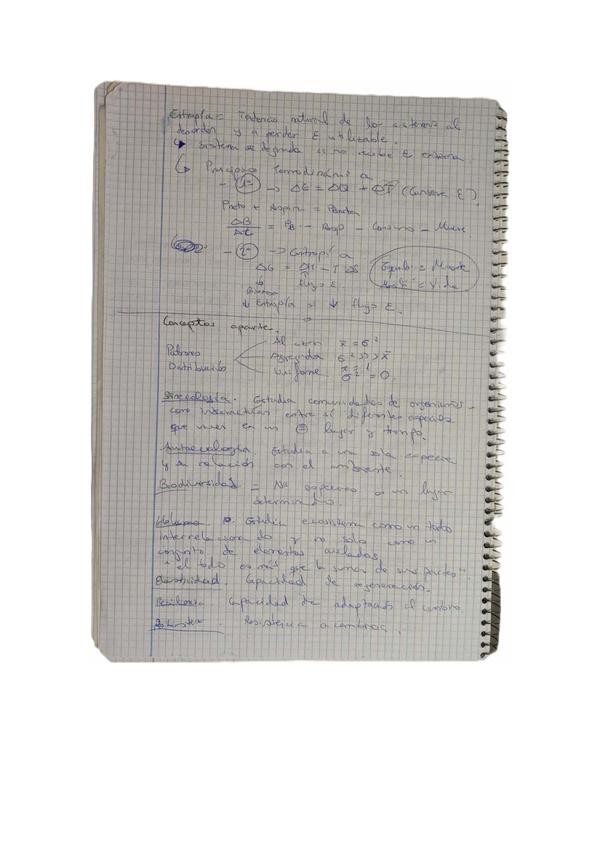 Entropía = Tendencia natural de los sistemas al
desorden y a perder E utilizable.
↳ Sistema se degrada si no recibe E externa
↳ Principios Termodinámica
- 1º → ΔE = ΔQ + (Conserva E).
Prod + Respir =
ΔB/Δt = PB - Resp - Consumo - Muere
- 2º → Entropía
ΔG = ΔH - T ΔS
↓ flujo E.
↓ Entropía si ↓ flujo E.
Equili = Muerte
= Vida
Conceptos aparte.
Patrones Distribución
Al azar x̄ = σ²
Agregada σ² >> x̄
Uniforme σ² = 0
Sinecología. Estudia comunidades de organismos,
como interactúan entre sí diferentes especies
que viven en un = lugar y tiempo.
Autoecología. Estudia a una sola especie
y su relación con el ambiente.
Biodiversidad = Nº especies en un lugar
determinado.
Holismo. Estudia ecosistema como un todo
interrelacionado y no solo como un
conjunto de elementos aislados.
"el todo es más que la suma de sus partes".
Elasticidad. Capacidad de regeneración.
Resiliencia. Capacidad de adaptación al cambio.
Resistencia a cambios.